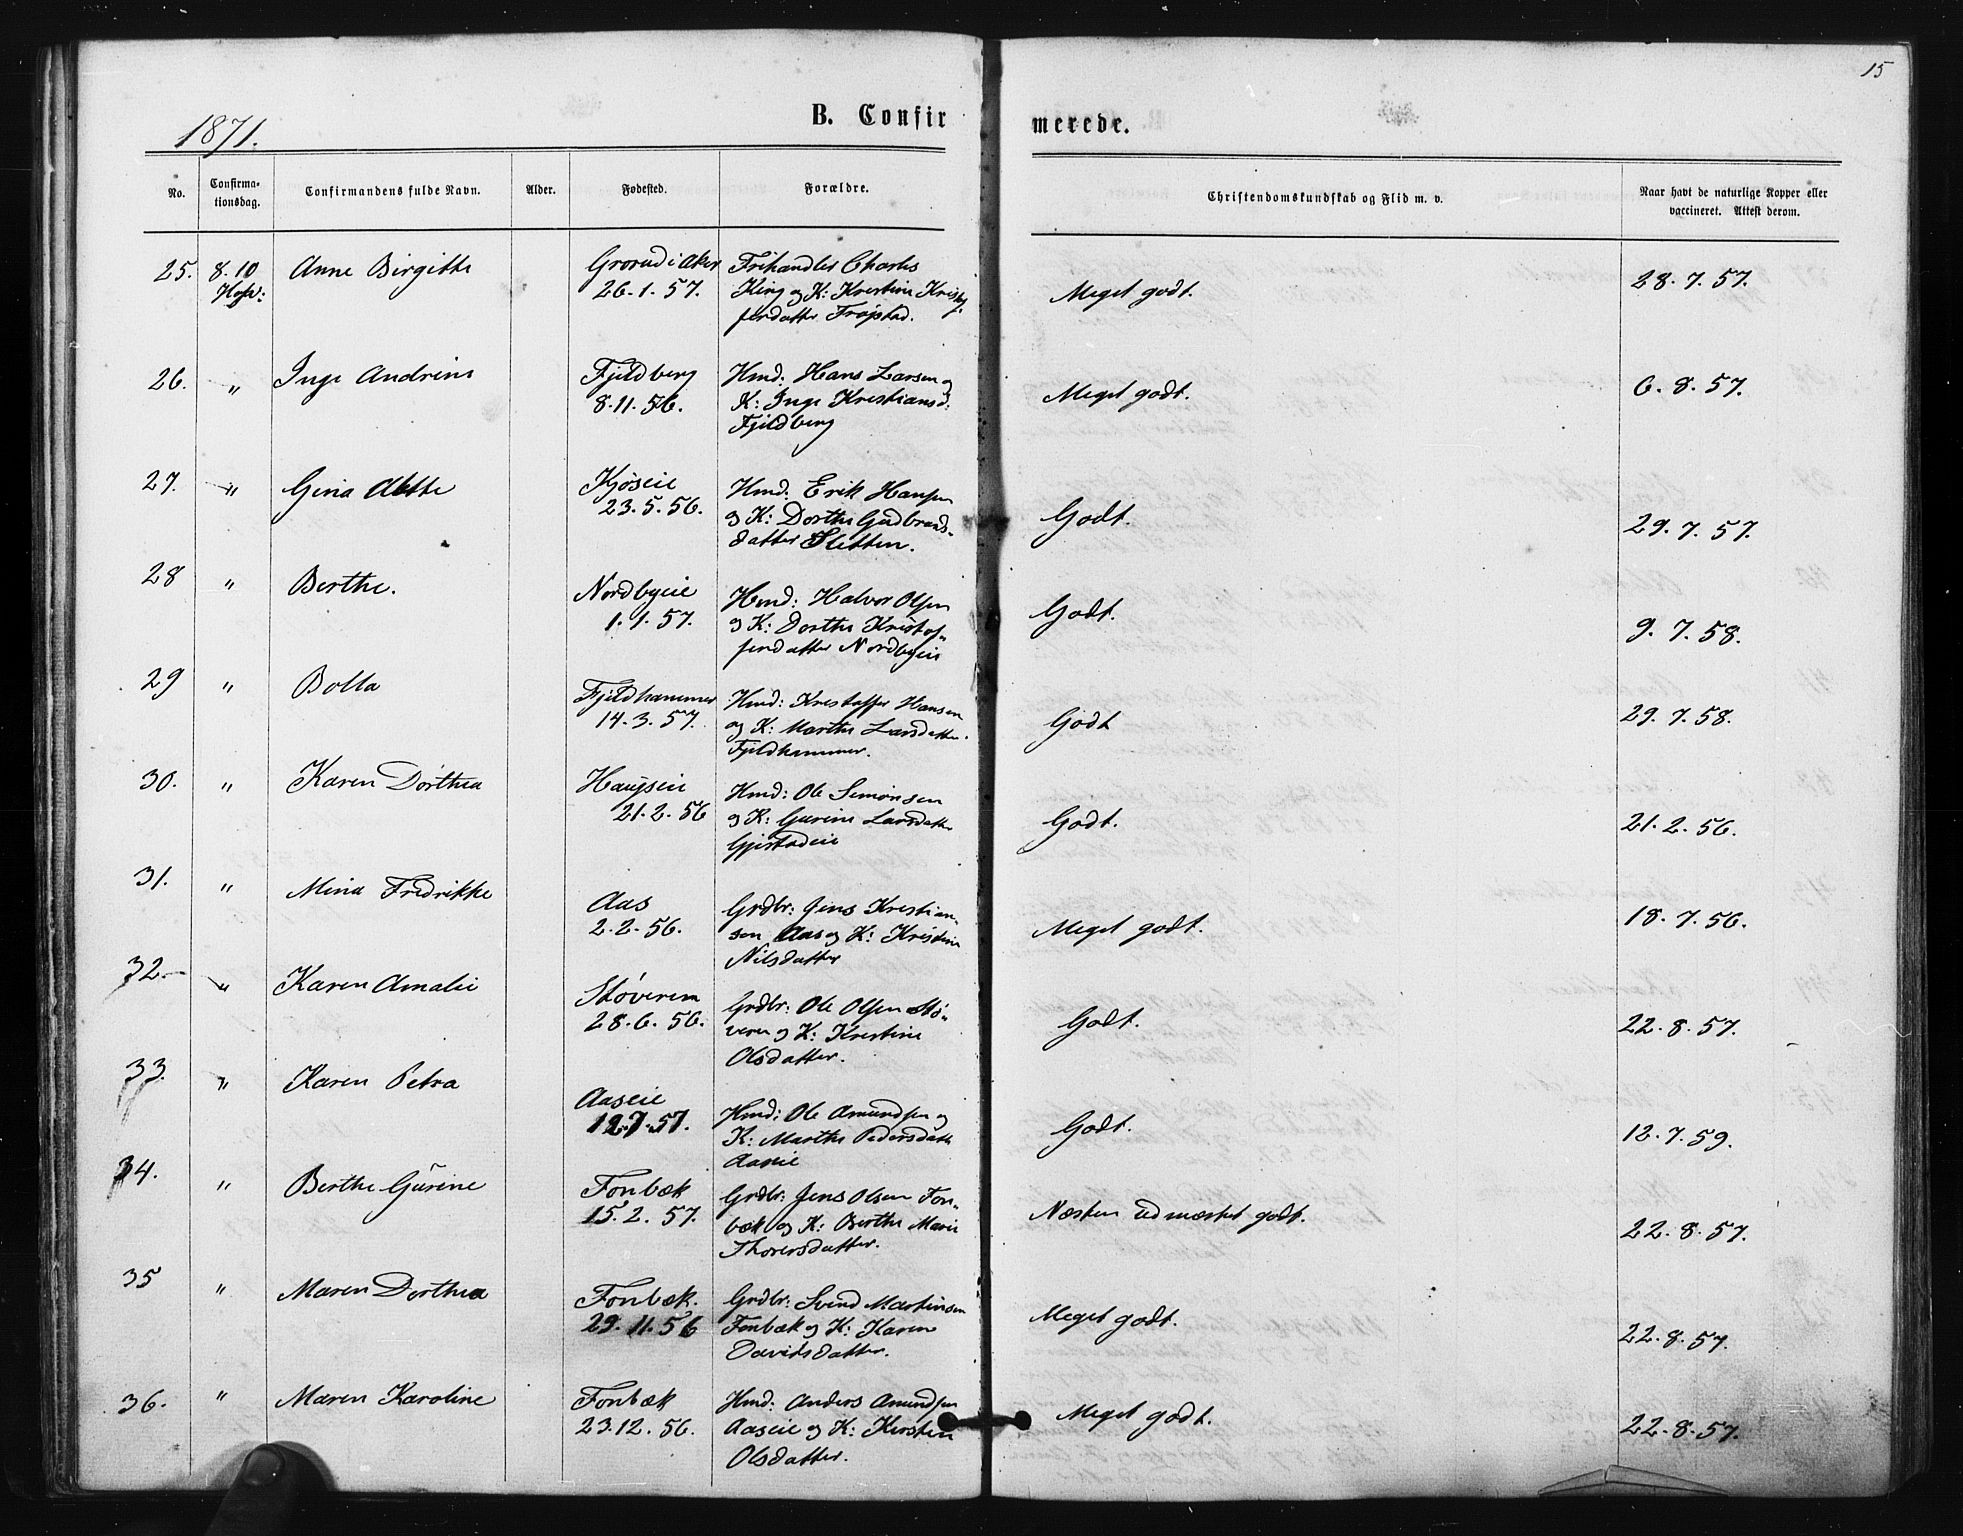 15
1871.
B. Confirmerede.
No.
Confirmationsdag.
Confirmandens fulde Navn.
Alder.
Fødested.
Forældre.
Christendomskundskab og Flid m. v.
Naar havt de naturlige Kopper eller
vaccineret. Attest derom.
25. 8. 10 Anne Birgitte Grorud i Aker
26. 1. 57.
Frihandler Charles
King og K: Kristine Kristof-
ferdatter Frøpstad.
Meget godt. 28. 7. 57.
26. " Inge Andrine Fjeldberg
8. 11. 56.
Hmd: Hans Larsen og
K: Inge Kristiansd:
Fjeldberg
Meget godt. 6. 8. 57.
27. " Gina Alette Kjøseie
23. 5. 56.
Hmd: Erik Hansen
og K: Dorthe Gudbrands-
datter Sletten.
Godt. 29. 7. 57.
28 " Berthe. Nordbyeie
1. 1. 57.
Hmd: Halvor Olsen
og K: Dorthe Kristof-
ferdatter Nordbyeie
Godt. 9. 7. 58.
29 " Bolla Fjeldhammer
14. 3. 57.
Hmd: Kristoffer Hansen
og K: Marthe Larsdatter
Fjeldhammer.
Godt 29. 7. 58.
30. " Karen Dorthea Haugseie
21. 2. 56
Hmd: Ole Simonsen
og K: Gurine Larsdatter
Gjestadeie
Godt. 21. 2. 56.
31. " Mina Fredrikke Aas
2. 2. 56.
Grdbr: Jens Kristian-
sen Aas og K: Kristine
Nilsdatter
Meget godt. 18. 7. 56.
32. " Karen Amalie Støveren
28. 6. 56.
Grdbr: Ole Olsen Stø-
veren og K: Kristine
Olsdatter.
Godt. 22. 8. 57.
33. " Karen Petra Aaseie
12. 7. 57.
Hmd: Ole Amundsen og
K: Marthe Pedersdatt
Aaseie
Godt. 12. 7. 59.
34. " Berthe Gurine Fonbæk
15. 2. 57.
Grdbr: Jens Olsen Fon-
bæk og K: Berthe Marie
Thorersdatter.
Næsten udmærket godt. 22. 8. 57.
35 " Maren Dorthea Fonbæk.
29. 11. 56
Grdbr: Svend Martinsen
Fonbæk og K: Karen
Davidsdatter.
Meget godt. 22. 8. 57.
36. " Maren Karoline Fonbæk
23. 12. 56.
Hmd: Anders Amundsen
Aaseie og K: Kirsten
Olsdatter.
Meget godt. 22. 8. 57.